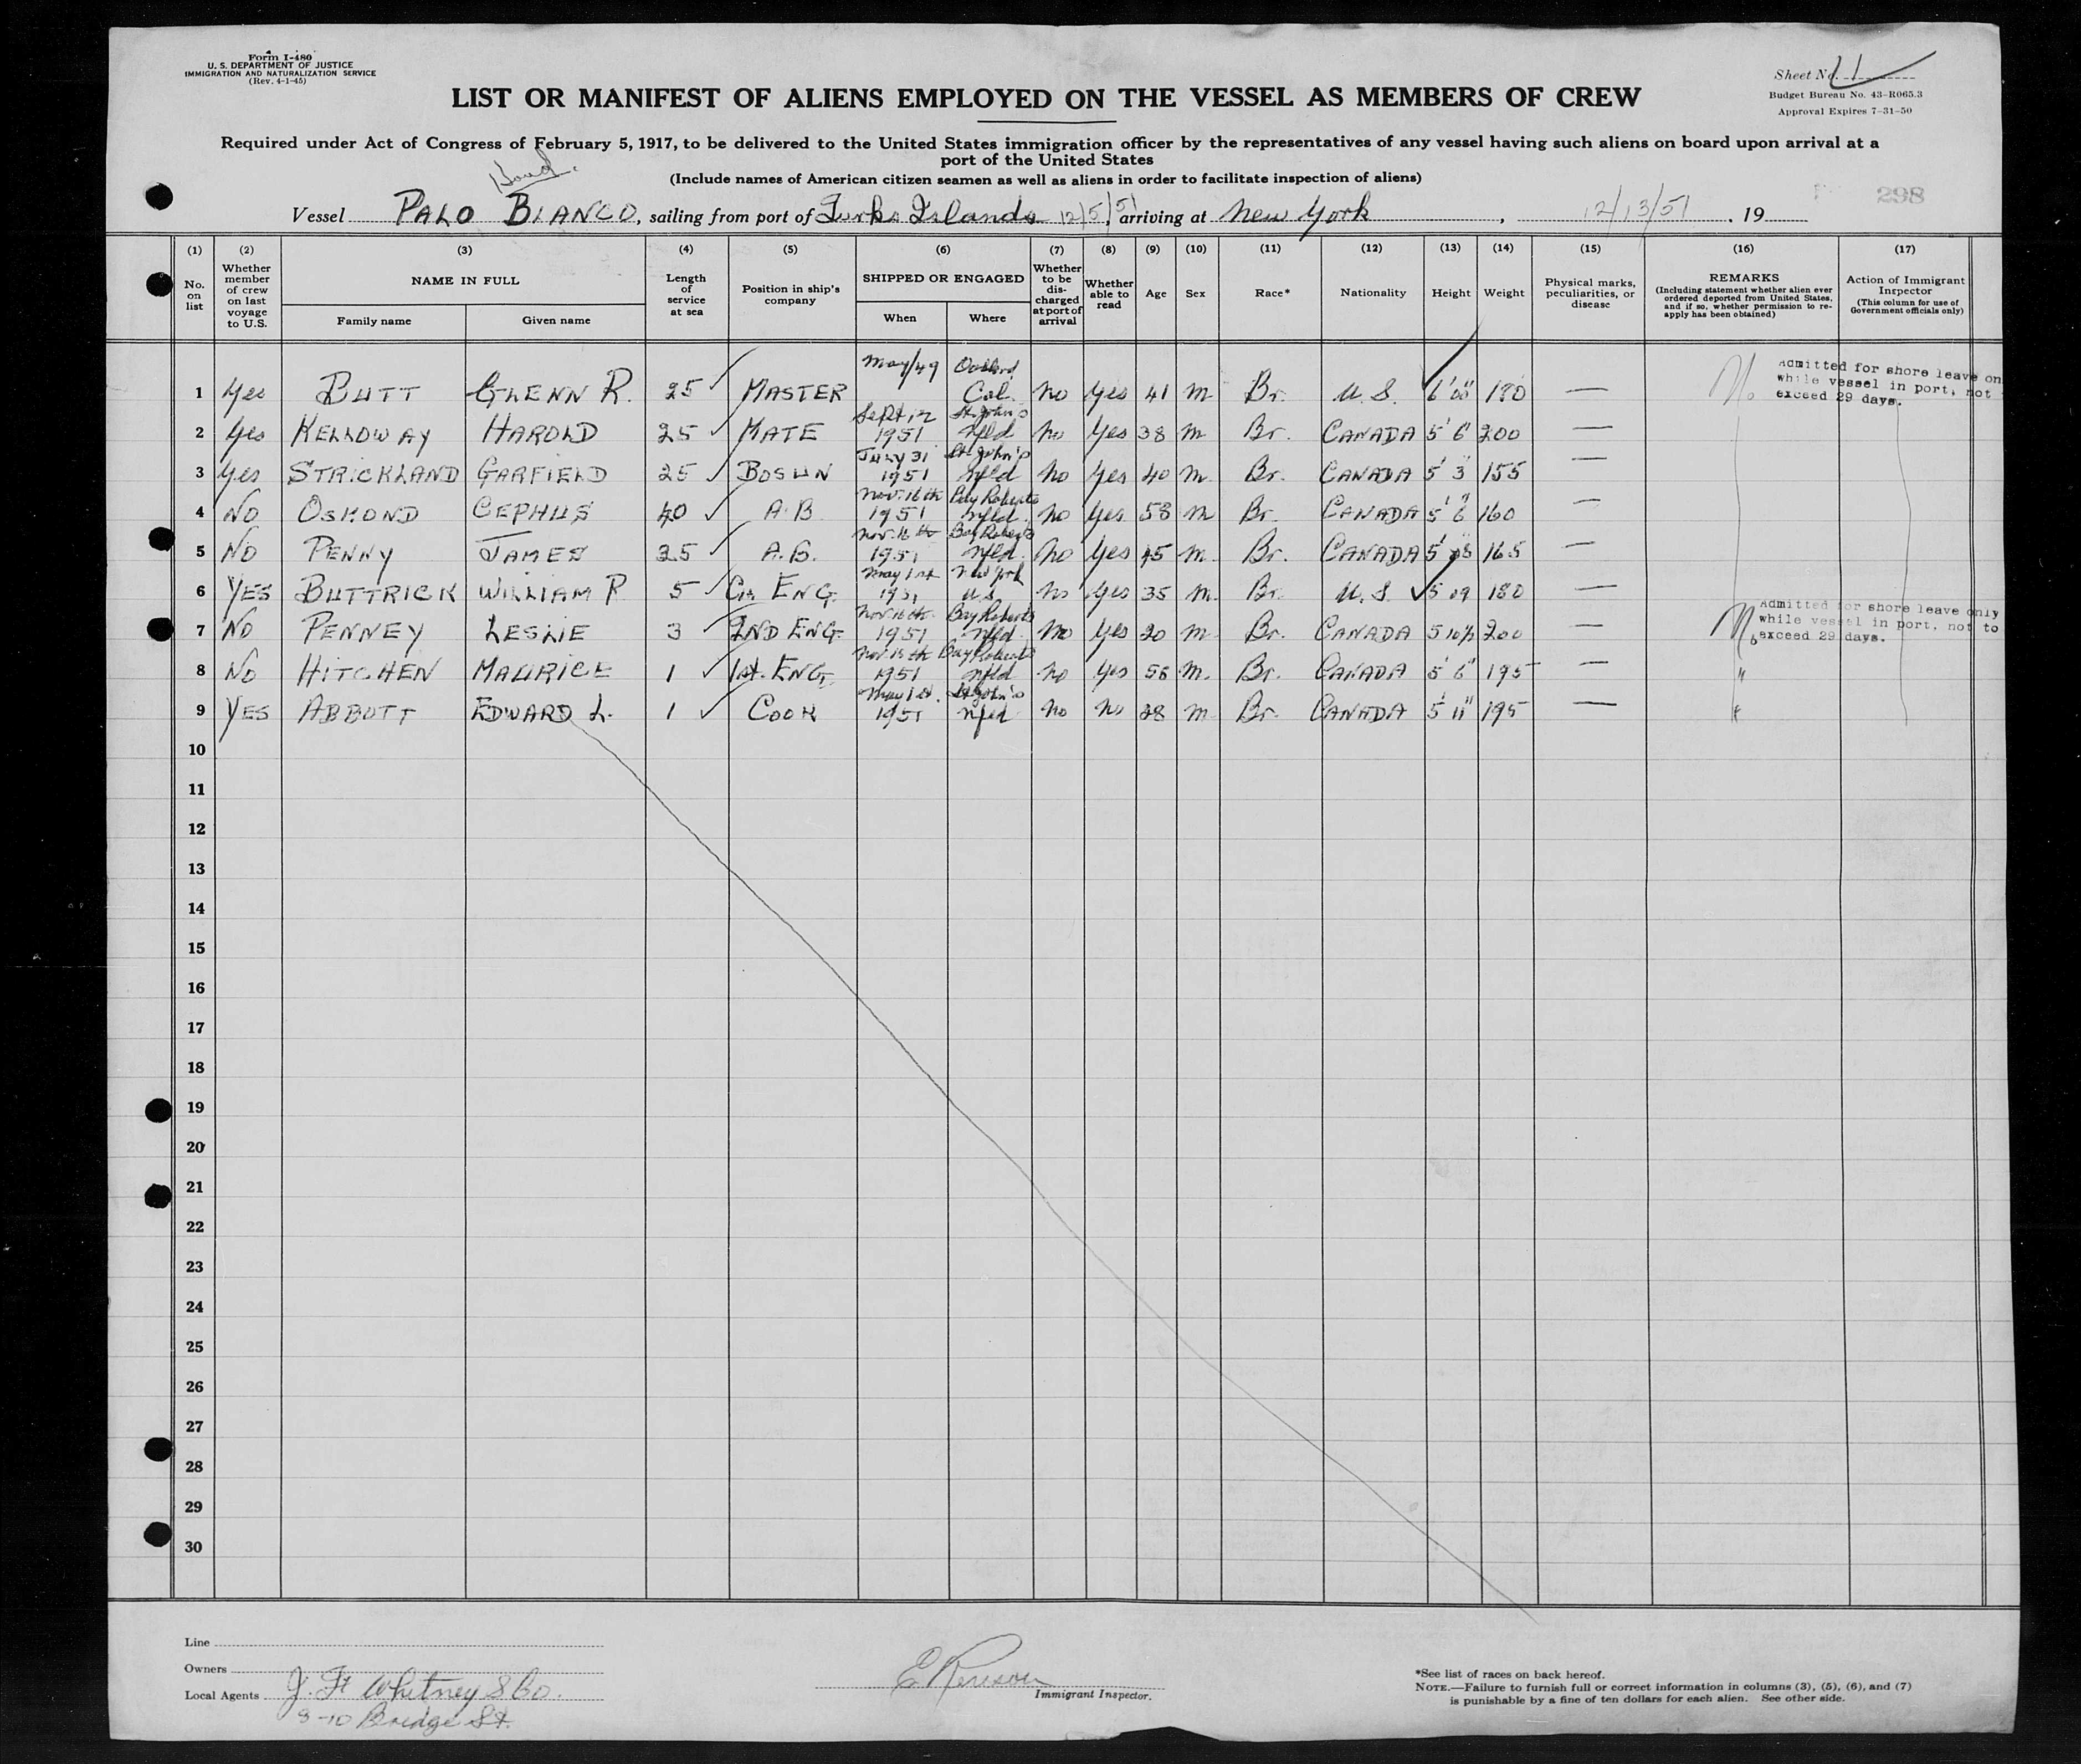 Form I-480
U. S. DEPARTMENT OF JUSTICE
IMMIGRATION AND NATURALIZATION SERVICE
(Rev. 4-1-45)
Sheet No. 1
Budget Bureau No. 43-R065.3
Approval Expires 7-31-50
LIST OR MANIFEST OF ALIENS EMPLOYED ON THE VESSEL AS MEMBERS OF CREW
Required under Act of Congress of February 5, 1917, to be delivered to the United States immigration officer by the representatives of any vessel having such aliens on board upon arrival at a
port of the United States
(Include names of American citizen seamen as well as aliens in order to facilitate inspection of aliens)
298
Vessel PALO BLANCO, sailing from port of Turks Islands 12/5/51, arriving at New York, 12/13/51, 19
(1) (2) (3) (4) (5) (6) (7) (8) (9) (10) (11) (12) (13) (14) (15) (16) (17)
No. on list
Whether member of crew on last voyage to U.S.
NAME IN FULL
Family name
Given name
Length of service at sea
Position in ship's company
SHIPPED OR ENGAGED
When
Where
Whether to be discharged at port of arrival
Whether able to read
Age
Sex
Race*
Nationality
Height
Weight
Physical marks, peculiarities, or disease
REMARKS
(Including statement whether alien ever ordered deported from United States, and if so, whether permission to re-apply has been obtained)
Action of Immigrant Inspector
(This column for use of Government officials only)
1 Yes BUTT GLENN R. 25 MASTER May/49 Oakland Cal. No Yes 41 m Br. U.S. 6'00" 180 —
Admitted for shore leave on
while vessel in port, not
exceed 29 days.
2 Yes KELLOWAY HAROLD 25 MATE Sept 12 1951 St. John's Nfld No Yes 38 m Br. CANADA 5' 6" 200 —
3 Yes STRICKLAND GARFIELD 25 BOSUN July 31 1951 St. John's Nfld No Yes 40 m Br. CANADA 5' 3" 155 —
4 No OSMOND CEPHUS 40 A.B Nov. 16th 1951 Bay Roberts Nfld. No Yes 58 m Br. CANADA 5' 6" 160 —
5 No PENNY JAMES 25 A.B. Nov. 16th 1951 Bay Roberts Nfld. No Yes 45 m. Br. CANADA 5' 8" 165 —
6 YES BUTTRICK WILLIAM R 5 Ch ENG. May 1st 1951 New York U.S. No Yes 35 m. Br. U.S. 5 09 180
7 No PENNEY LESLIE 3 2ND ENG. Nov. 16th 1951 Bay Roberts Nfld. No Yes 20 m. Br. CANADA 5 10½ 200 —
Admitted for shore leave only
while vessel in port, not to
exceed 29 days.
8 No HITCHEN MAURICE 1 1st. ENG. 1951 Bay Roberts Nfld No Yes 58 m. Br. CANADA 5' 6" 195 — "
9 YES ABBOTT EDWARD L. 1 COOK May 1st. 1951 St. John's Nfld No No 28 m Br. CANADA 5' 11" 195 — "
10
11
12
13
14
15
16
17
18
19
20
21
22
23
24
25
26
27
28
29
30
Line
Owners
Local Agents J. H Whitney & Co.
9-10 Bridge St.
Immigrant Inspector.
*See list of races on back hereof.
NOTE.—Failure to furnish full or correct information in columns (3), (5), (6), and (7)
is punishable by a fine of ten dollars for each alien. See other side.